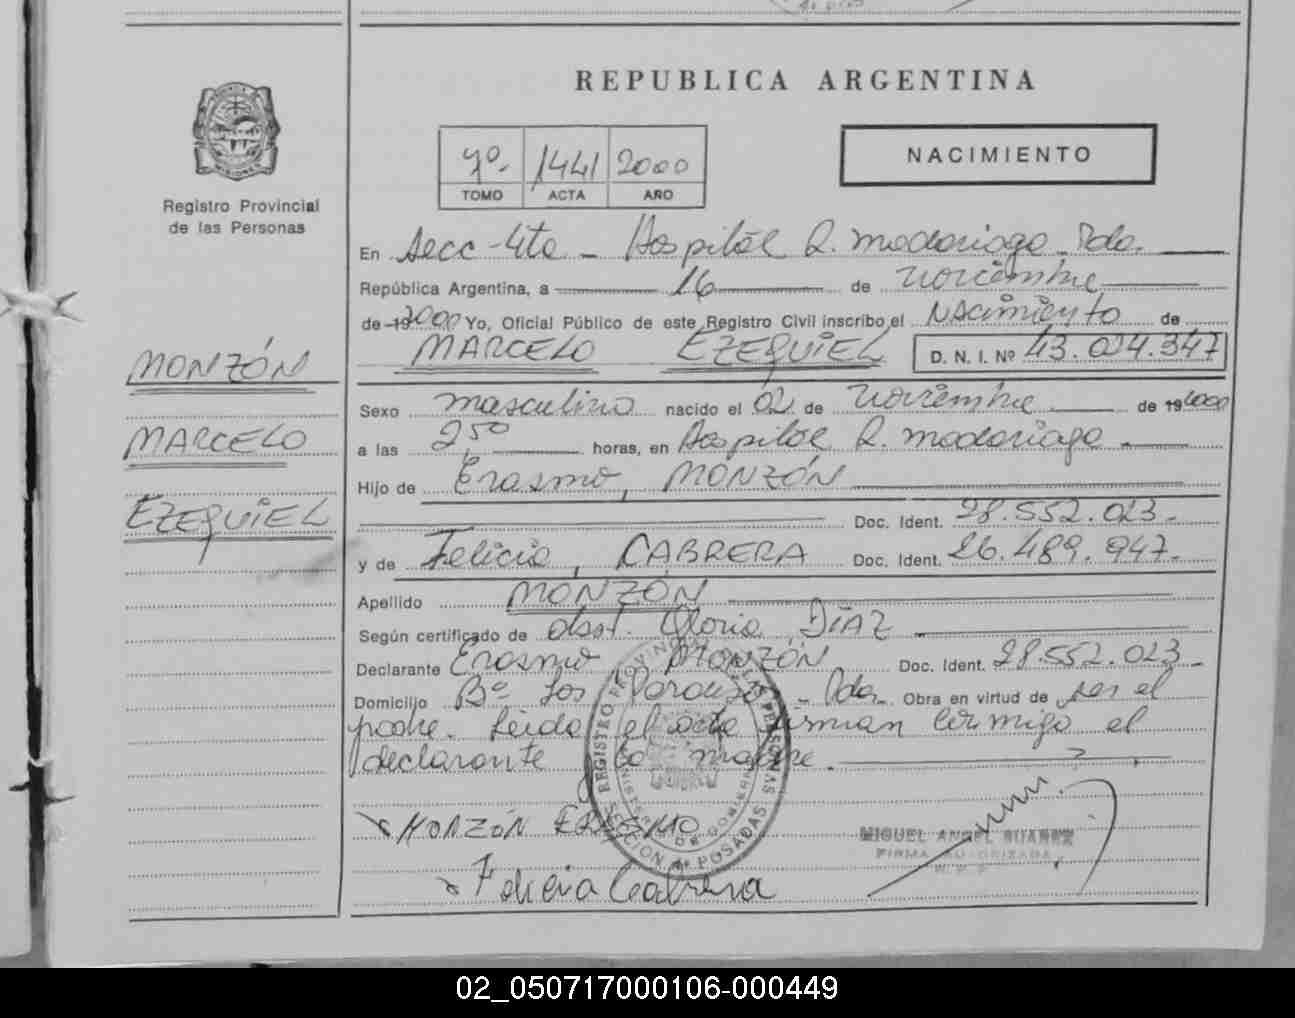 REPUBLICA ARGENTINA
MISIONES
Registro Provincial
de las Personas
1441 2000
TOMO ACTA AÑO
NACIMIENTO
En Secc - 4ta - Hospital R. Madariaga - Pdas.
República Argentina, a 16 de noviembre
de 19 2000 Yo, Oficial Público de este Registro Civil inscribo el Nacimiento de
MARCELO EZEQUIEL D. N. I. Nº 43.024.347
MONZÓN
MARCELO
EZEQUIEL
Sexo masculino nacido el 02 de noviembre de 19 2000
a las 2,50 horas, en Hospital R. Madariaga
Hijo de Erasmo, MONZÓN
Doc. Ident. 28.552.023.
y de Felicia, CABRERA Doc. Ident. 26.489.947.
Apellido MONZÓN
Según certificado de obst. Gloria DIAZ
Declarante Erasmo MONZÓN Doc. Ident. 28.552.023
Domicilio Bº Los Paraisos - Pdas. Obra en virtud de ser el
padre. Leida el acta firman conmigo el
declarante y la madre.
REGISTRO PROVINCIAL DE LAS PERSONAS
MINISTERIO DE GOBIERNO
SECCION 4ª POSADAS
MONZÓN ERASMO
Felicia Cabrera
MIGUEL ANGEL SUAREZ
FIRMA AUTORIZADA
02_050717000106-000449